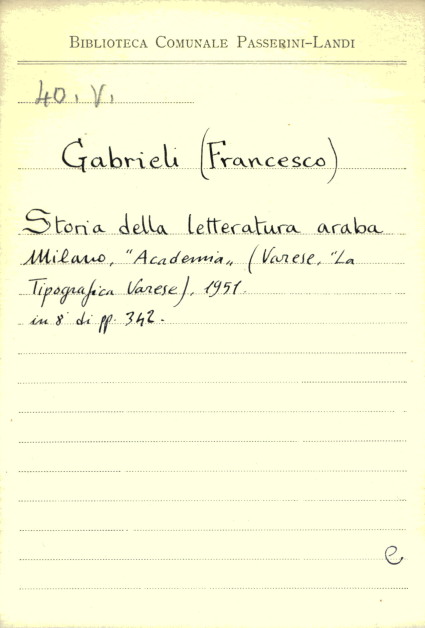 BIBLIOTECA COMUNALE PASSERINI-LANDI
40. V.
Gabrieli (Francesco)
Storia della letteratura araba
Milano, "Academia„ (Varese, "La
Tipografica Varese), 1951.
in 8° di pp. 342.
e